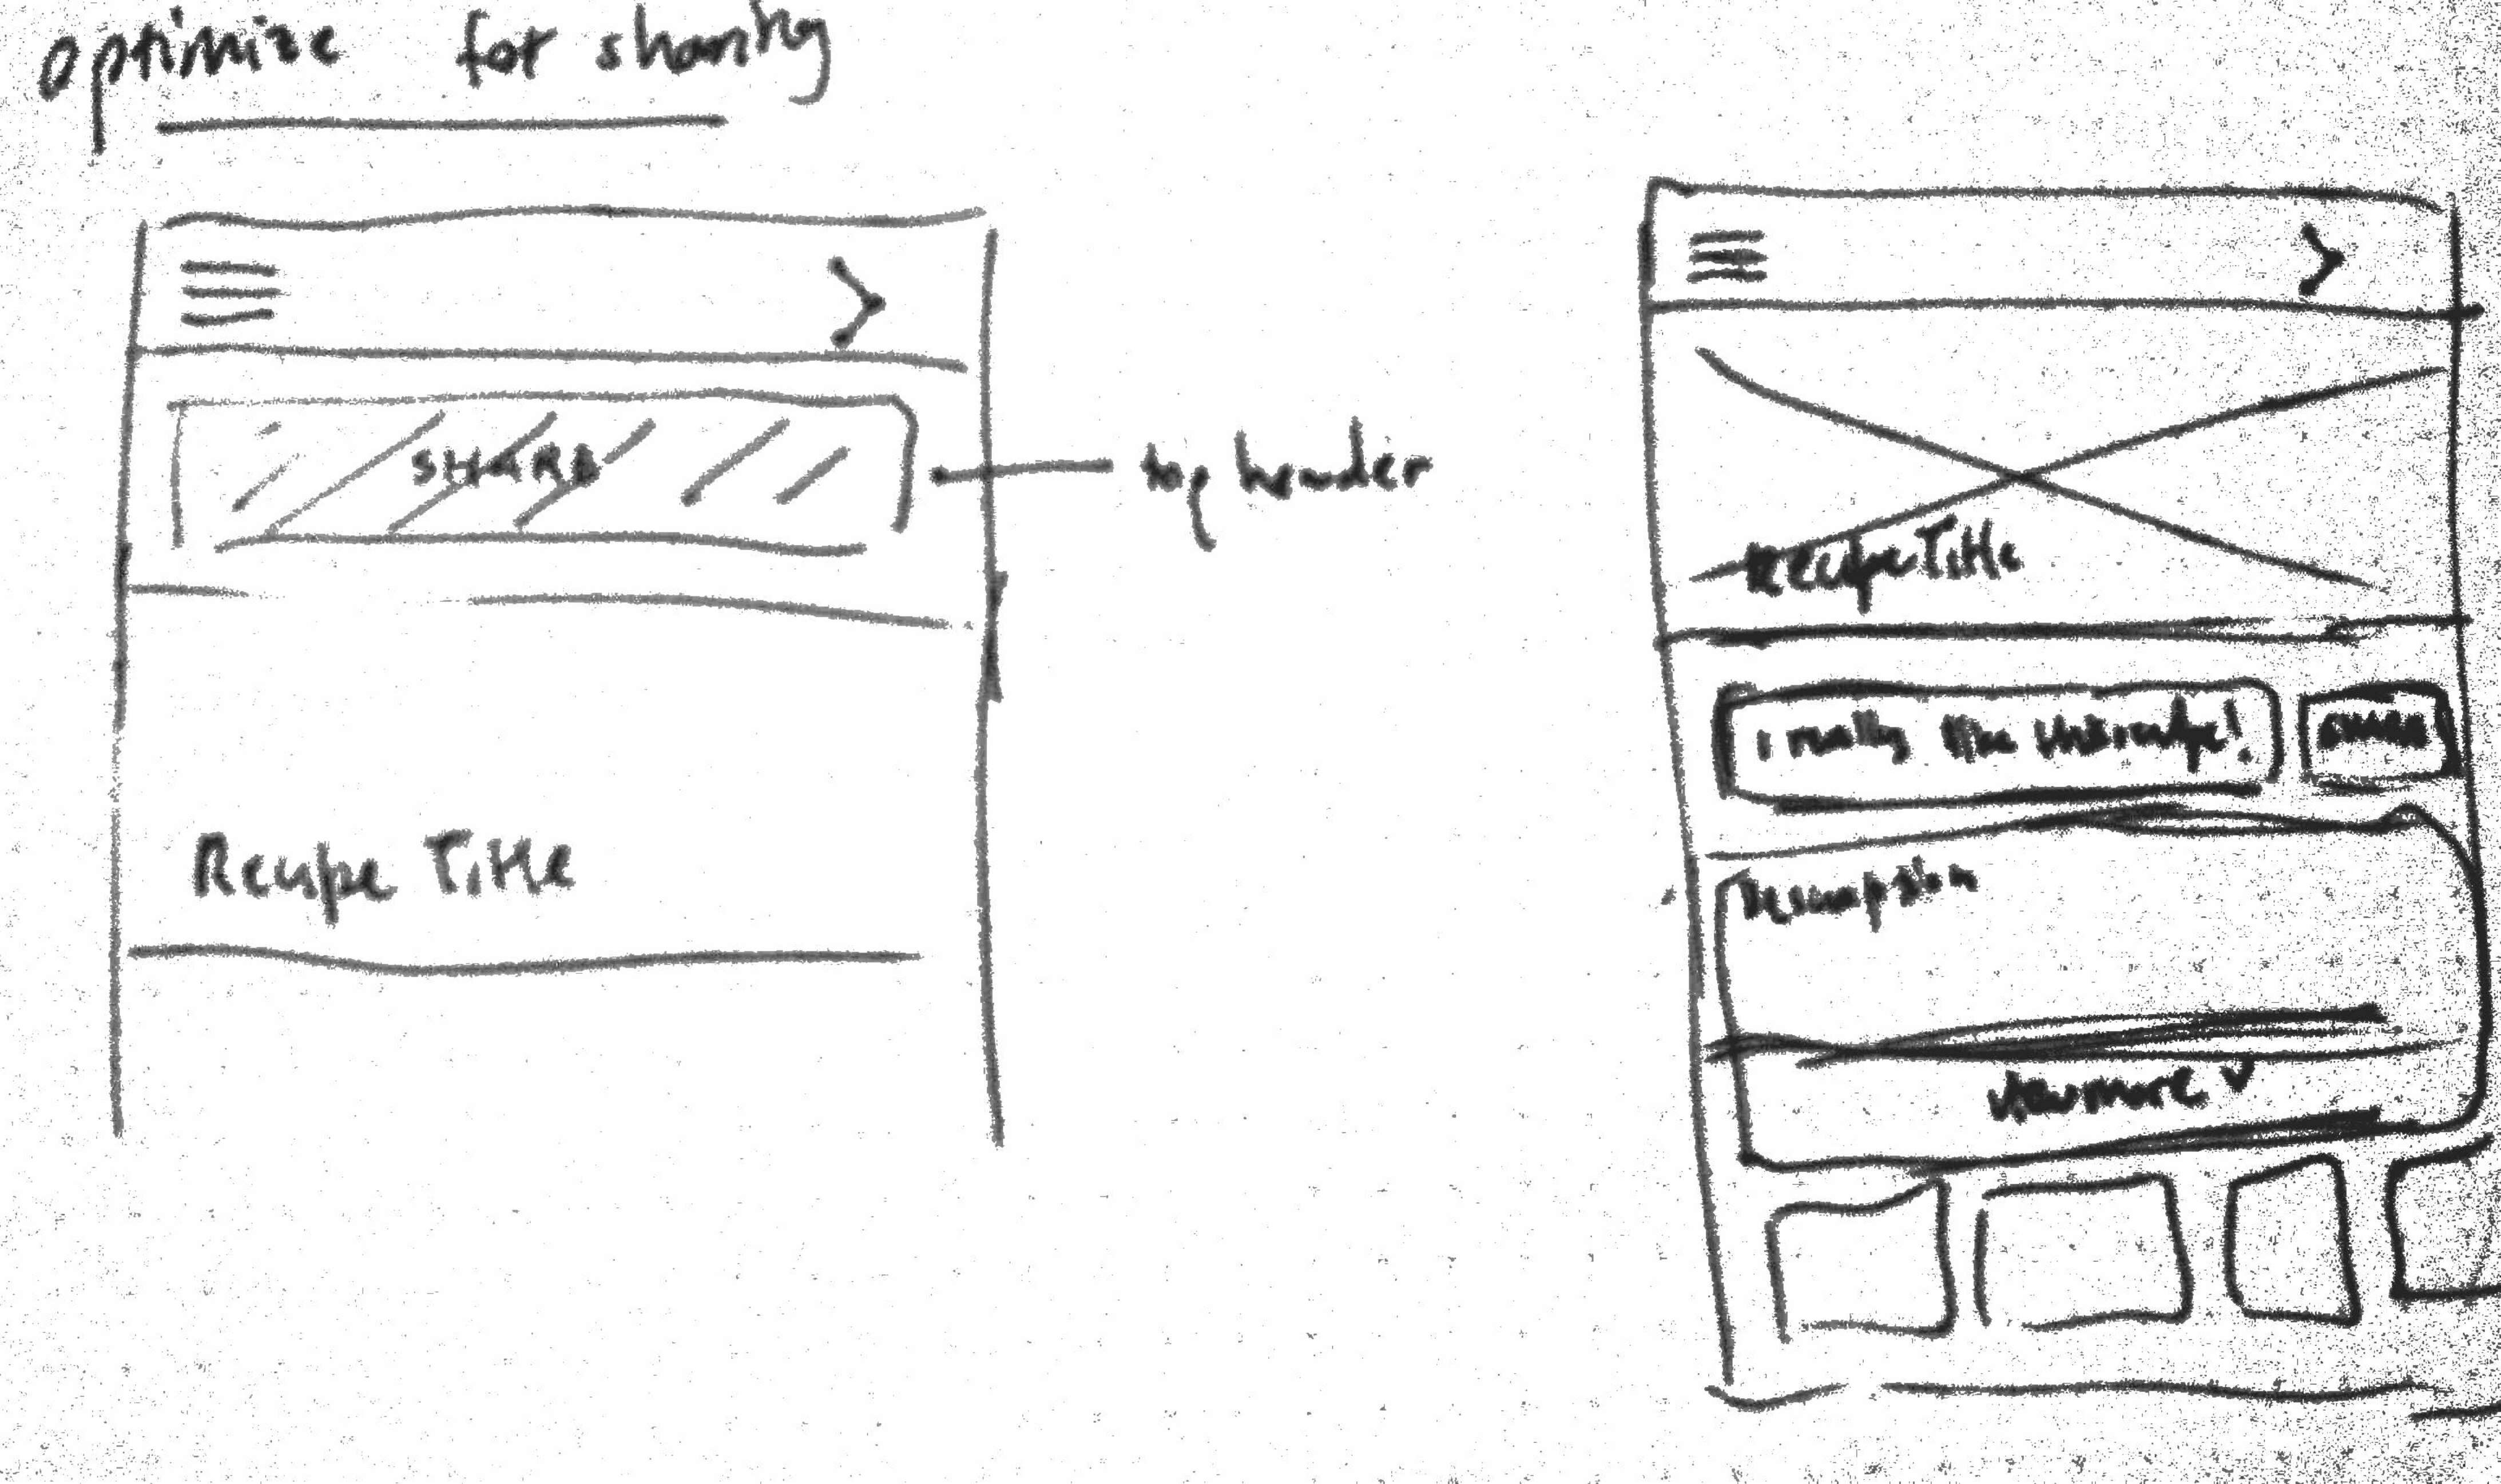 optimize for sharing
SHARE
top header
Recipe Title
Recipe Title
i really like this recipe!
Description
View more